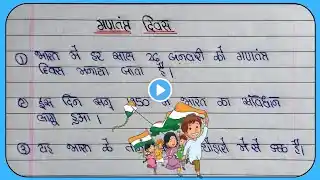 गणतंत्र दिवस
① भारत में हर साल 26 जनवरी को गणतंत्र
दिवस मनाया जाता है।
② इस दिन सन् 1950 में भारत का संविधान
लागू हुआ।
③ यह भारत के में से एक है।